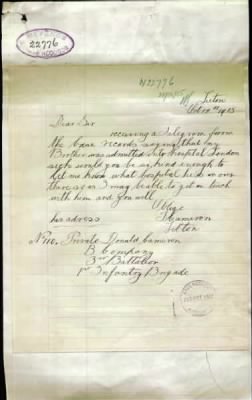 22776
N22776
Tilton
Oct 12th 1915
Dear Sir
receiving a Telegram from
the base records saying that my
Brother was admitted into hospital London
sick would you be so kind enough to
let me know what hospital he is in over
there as I may be able to get in touch
with him and you will
Oblige
his address
J Cameron
Tilton
No 710. Private Donald Cameron
B Company
3rd Battalion
1st Infantry Brigade